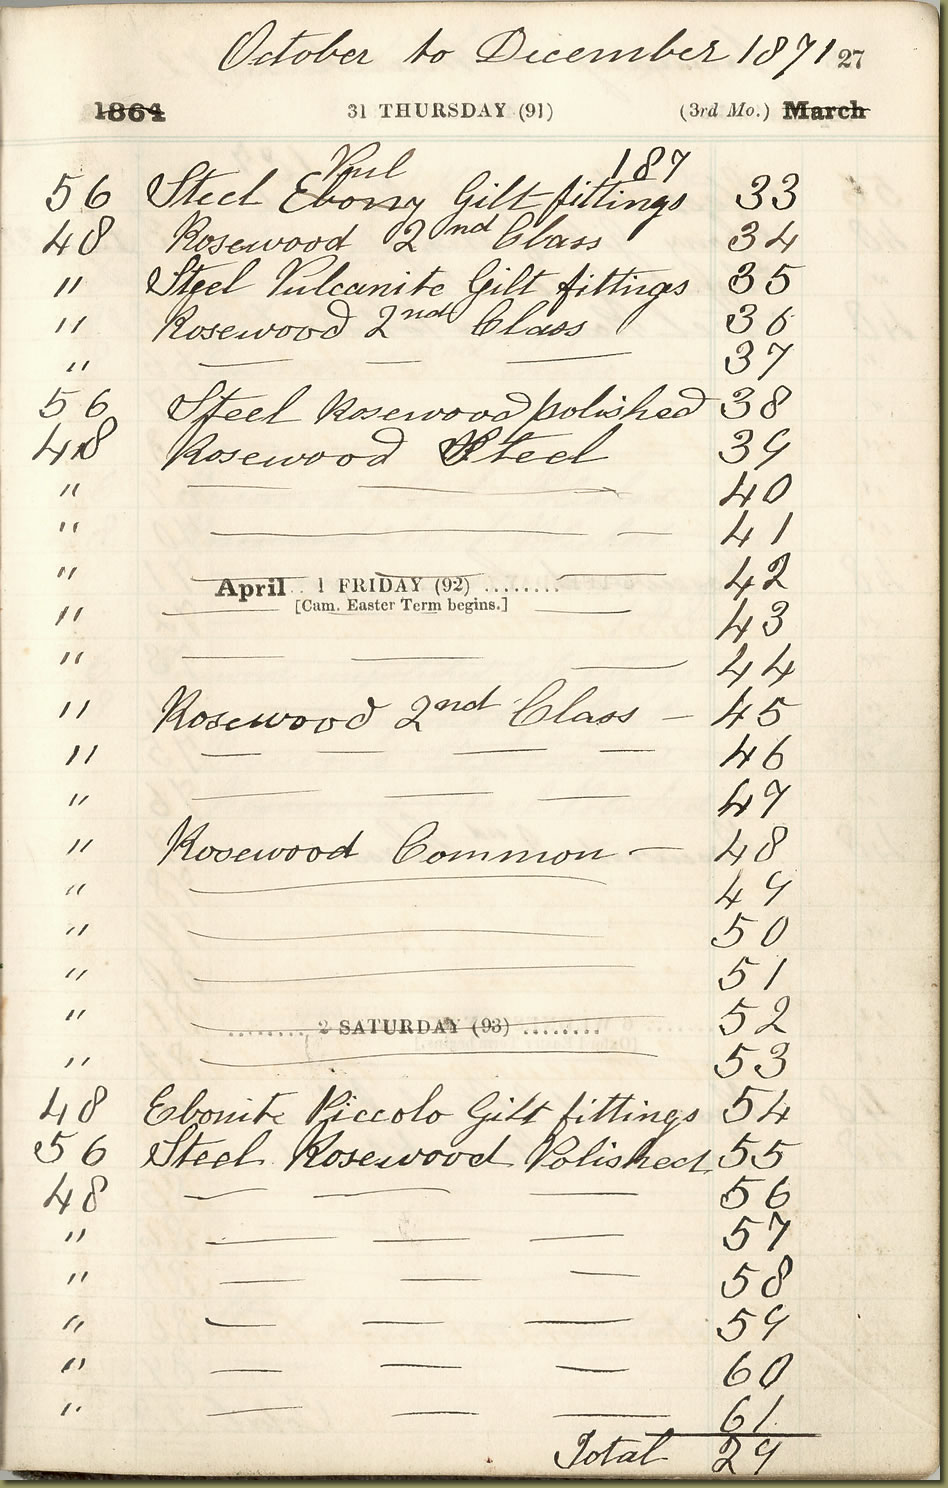 October to December 1871 27
1864 31 THURSDAY (91) (3rd Mo.) March
187
56 Steel Ebony Gilt fittings 33
48 Rosewood 2nd Class 34
" Steel Vulcanite Gilt fittings 35
" Rosewood 2nd Class 36
" — — — 37
56 Steel Rosewood polished 38
48 Rosewood Steel 39
" — — 40
" — — 41
" — — — 42
April 1 FRIDAY (92) ........
[Cam. Easter Term begins.]
" — — 43
" — — — 44
" Rosewood 2nd Class — 45
" — — — — 46
" — — — 47
" Rosewood Common — 48
" — 49
" — 50
" — 51
" — 52
........ 2 SATURDAY (93) ........
" — 53
48 Ebonite Piccolo Gilt fittings 54
56 Steel Rosewood Polished 55
48 — — — 56
" — — — 57
" — — — 58
" — — — 59
" — — — 60
" — — — 61
Total 29